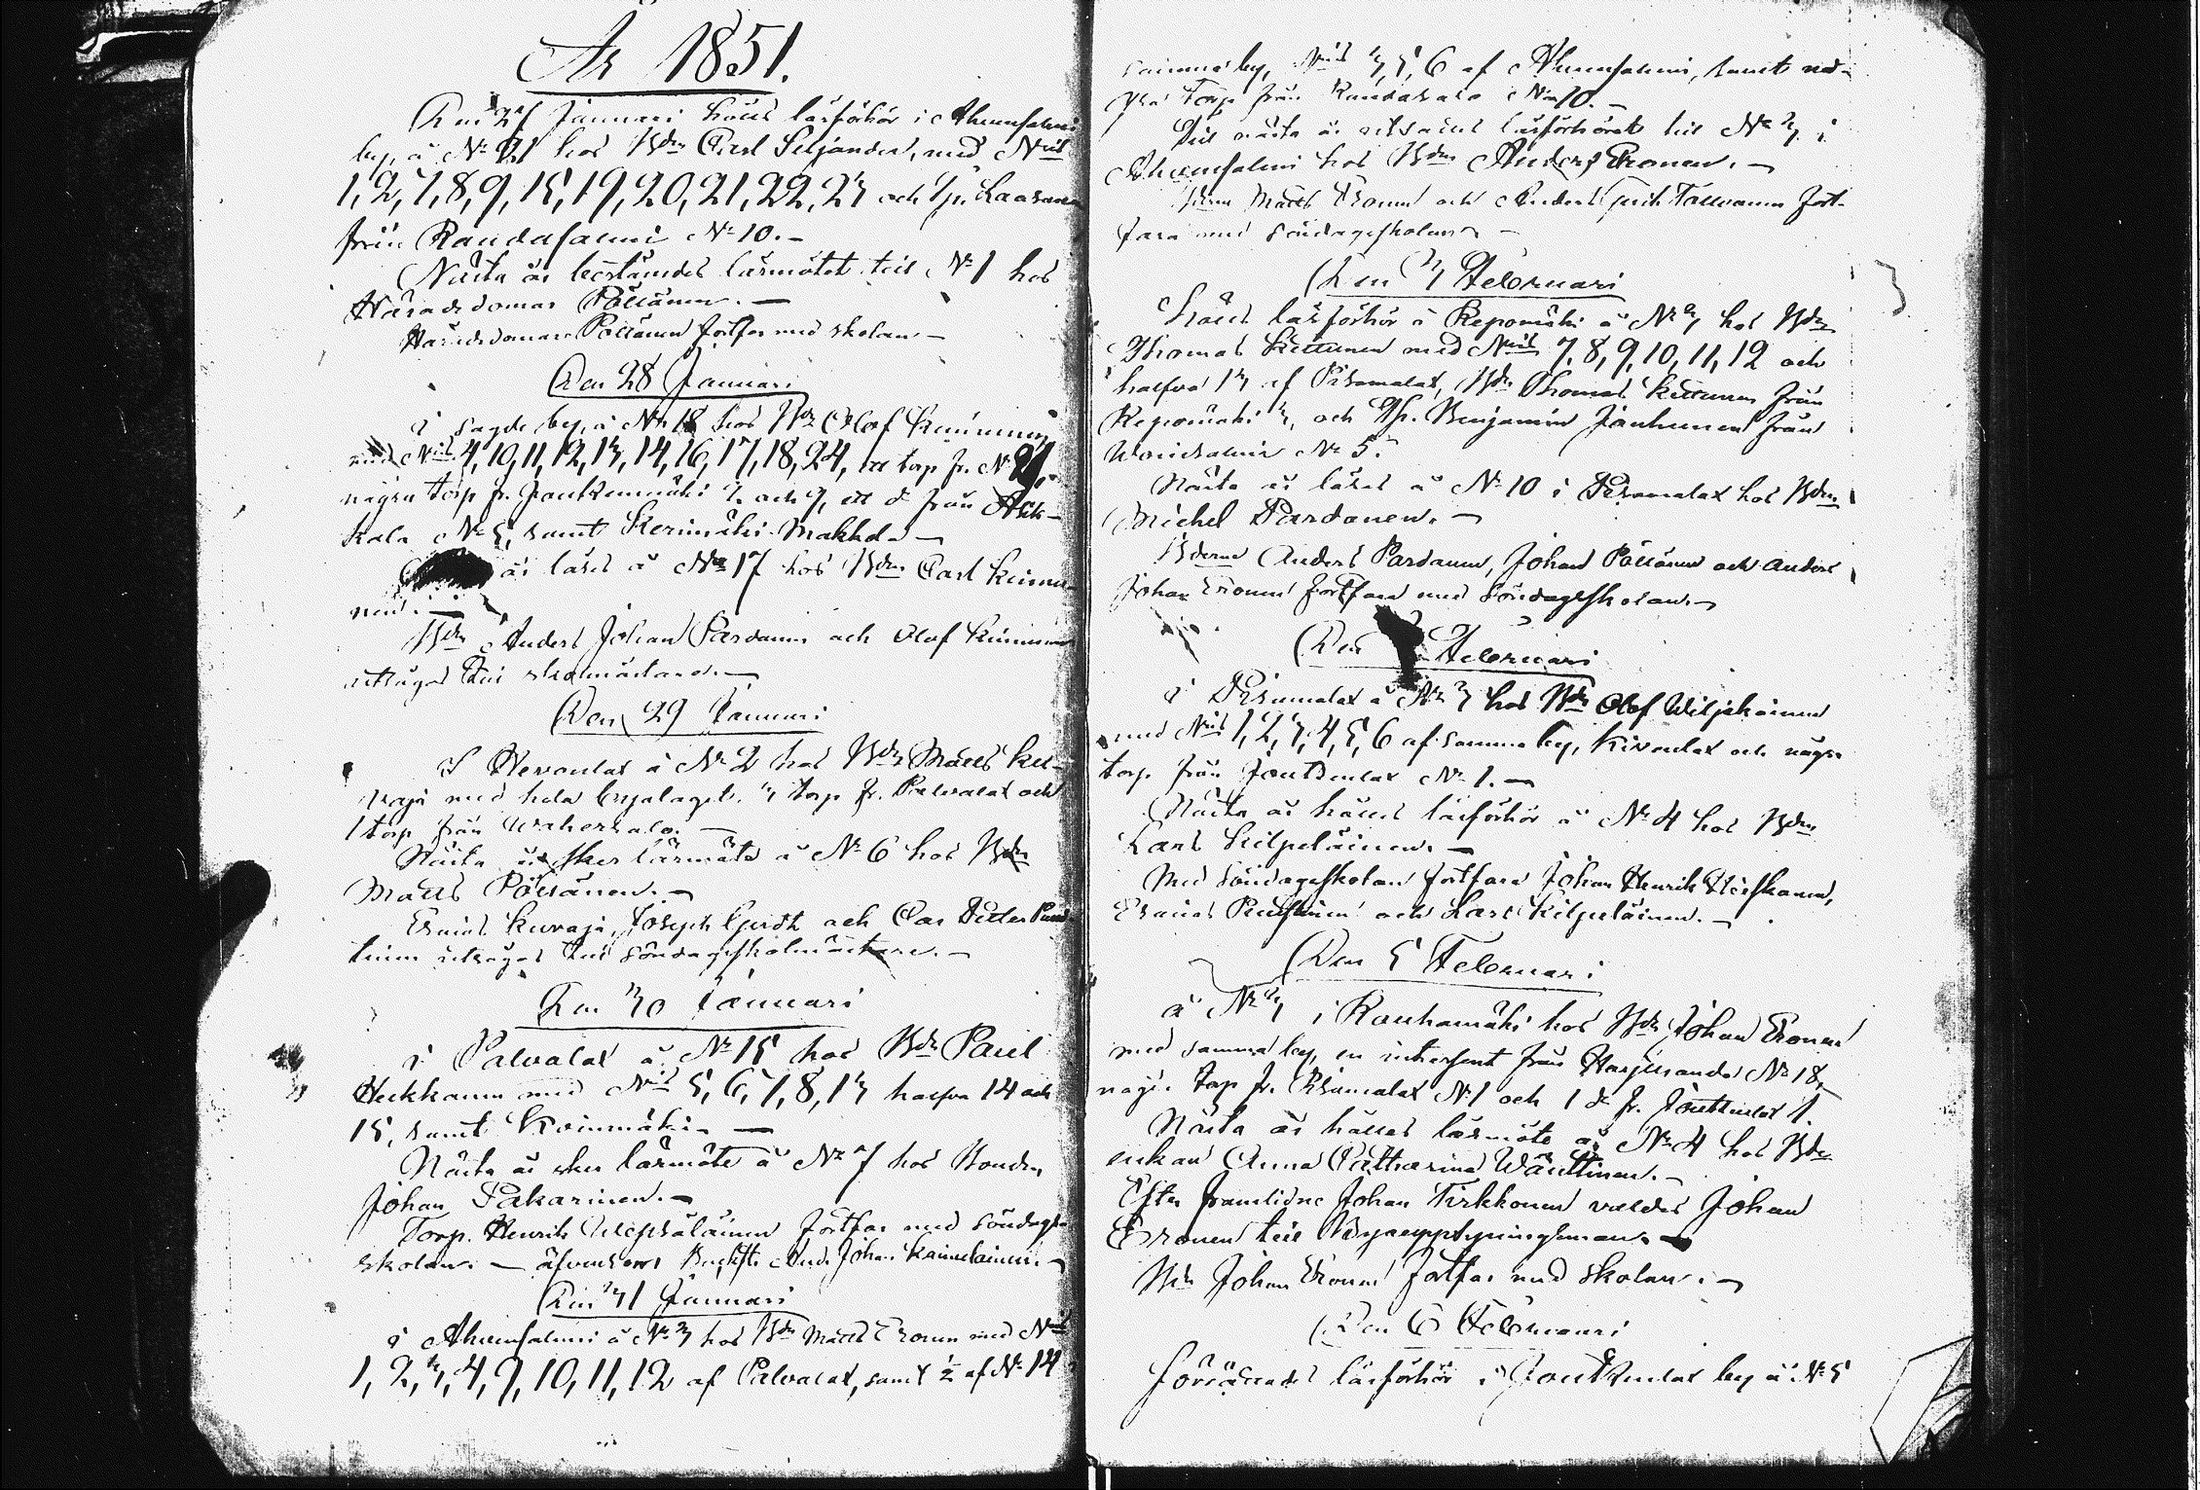 År 1851.
Den 27 Januari hölls läsförhör i Ahvensalmi
by, å No 21 hos Bdn Carl Siljander, med Nris
1, 2, 7, 8, 9, 15, 19, 20, 21, 22, 23 och
från Randasalmi No 10.—
Nästa år bestämdes läsmötet till No 1 hos
Häradsdomar Pöllänen.—
Häradsdomare Pöllänen fortfar med skolan—
Den 28 Januari
i sagde by, å No 18 hos Bdn Olof Kinnunen
med Nris 4, 10, 11, 12, 13, 14, 16, 17, 18, 24, ett torp fr. No 21,
några torp fr. och 9, ett do från
kala No 5, samt Kerimäki Makkola—
år läses å No 17 hos Bdn Carl Kinnu-
nen.—
Bdn Anders Johan Pardanen och Olof Kinnunen
till skolmästare.—
Den 29 Januari
I Hevonlax å No 2 hos Bdn Matts Ku-
vaja med hela byalaget, 3 torp fr. Palvalax och
1 torp från Wahersalo.—
Nästa år sker läsmöte å No 6 hos Bdn
Matts Pöllänen.—
Kuvaja, Joseph och Petter
till Söndagsskolmästare.—
Den 30 Januari
i Palvalax å No 15 hos Bdn Paul
Heikkanen med Nris 5, 6, 7, 8, 13 halfva 14 och
15, samt Koinmäki.—
Nästa år sker läsmöte å No 7 hos Bonden
Johan Pakarinen.—
Torp. Henrik fortfar med söndags-
skolan.— äfvensom And. Johan Kainulainen.—
Den 31 Januari
i Ahvensalmi å No 3 hos Bdn Matts Eronen med Nris
1, 2, 3, 4, 9, 10, 11, 12 af Palvalax, samt ½ af No 14
samma by, Nris 3, 5, 6 af Ahvensalmi, samt nå-
gra torp från Randasalo No 10.—
Till nästa år utsattes läsförhöret till No 3 i
Ahvensalmi hos Bdn Anders Eronen.—
Matts Eronen och Anders Tolvanen fort-
fara med söndagsskolan—
Den 3 Februari
hölls läsförhör i Repomäki å No 3 hos Bdn
Thomas Kettunen med Nris 7, 8, 9, 10, 11, 12 och
halfva 13 af Pisamalax, Bdn Thomas Kettunen från
Repomäki 3, och Benjamin Jänhunen från
No 5.
Nästa år läses å No 10 i Pisamalax hos Bdn
Michel Pardanen.—
Bderne Anders Pardanen, Johan Pöllänen och Anders
Johan Eronen fortfara med Söndagsskolan.—
Den Februari
i Pisamalax å No 3 hos Bdn Olof Wiljakainen
med Nris 1, 2, 3, 4, 5, 6 af samma by, Kivonlax och några
torp från Joutsenlax No 1.—
Nästa år hålles läsförhör å No 4 hos Bdn
Lars Kilpeläinen.—
Med Söndagsskolan fortfara Johan Henrik
och Lars Kilpeläinen.—
Den 5 Februari
å No 3 i Rauhamäki hos Bdn Johan Eronen
med samma by, en från Harjuranda No 18,
några torp fr. Pisamalax No 1 och 1 do fr. Joutsenlax 1.
Nästa år hålles läsmöte å No 4 hos Bde
enkan Anna Catharina Wänttinen.—
Efter framlidne Johan Tirkkonen valdes Johan
Eronen till Byauppsyningsman.—
Bdn Johan Eronen fortfar med skolan.—
Den 6 Februari
läsförhör i Joutsenlax by å No 5